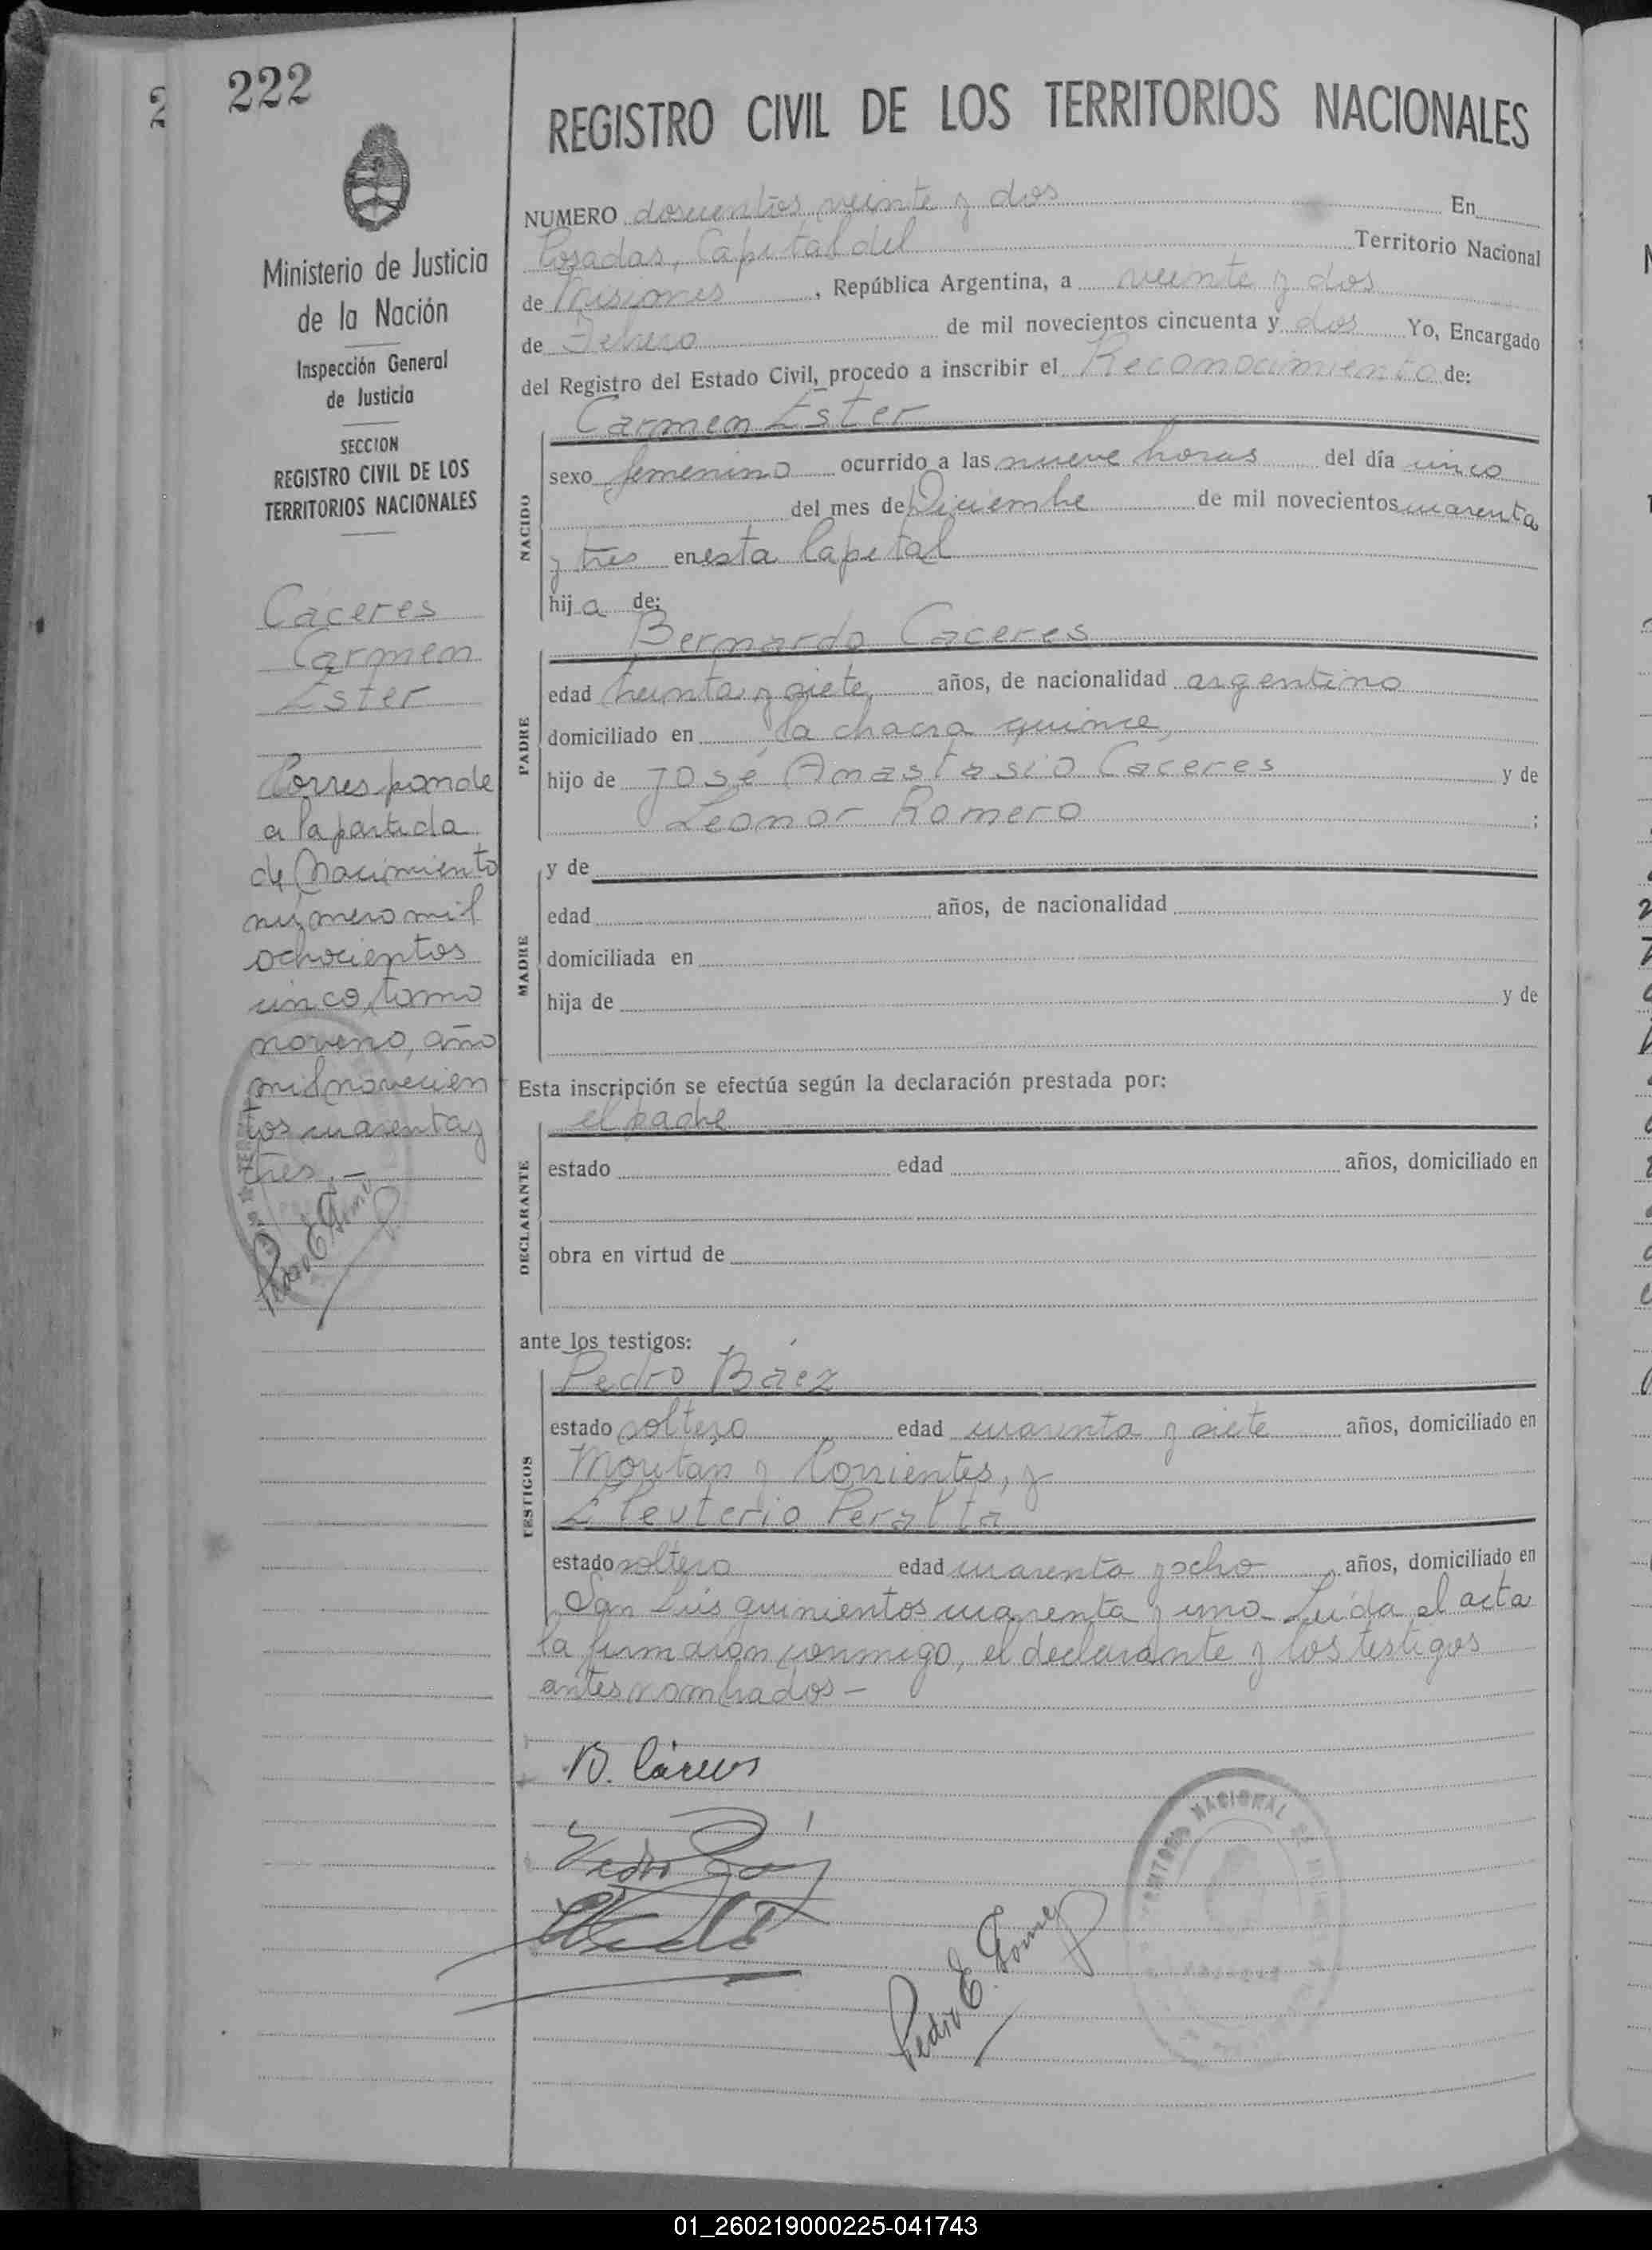 222
Ministerio de Justicia
de la Nación
Inspección General
de Justicia
SECCION
REGISTRO CIVIL DE LOS
TERRITORIOS NACIONALES
Caceres
Carmen
Ester
Corresponde
a la partida
de Nacimiento
número mil
ochocientos
cinco, tomo
noveno, año
mil novecien
tos cuarenta y
tres.-
Pedro E. Gomez
REGISTRO CIVIL DE LOS TERRITORIOS NACIONALES
NUMERO doscientos veinte y dos En
Posadas, Capital del Territorio Nacional
de Misiones, República Argentina, a veinte y dos
de Febrero de mil novecientos cincuenta y dos Yo, Encargado
del Registro del Estado Civil, procedo a inscribir el Reconocimiento de:
NACIDO
Carmen Ester
sexo femenino ocurrido a las nueve horas del día cinco
del mes de Diciembre de mil novecientos cuarenta
y tres en esta Capital
hija de:
PADRE
Bernardo Caceres
edad treinta y siete, años, de nacionalidad argentino
domiciliado en la chacra quince,
hijo de José Anastasio Caceres y de
Leonor Romero ;
MADRE
y de
edad años, de nacionalidad
domiciliada en
hija de y de
Esta inscripción se efectúa según la declaración prestada por:
DECLARANTE
el padre
estado edad años, domiciliado en
obra en virtud de
ante los testigos:
TESTIGOS
Pedro Báez
estado soltero edad cuarenta y siete años, domiciliado en
y Corrientes, y
Eleuterio Peralta
estado soltero edad cuarenta y ocho años, domiciliado en
San Luis quinientos cuarenta y uno- Leída el acta
la firmaron conmigo, el declarante y los testigos
antes nombrados-
B. Cáceres
Pedro Báez
Pedro E. Gomez
NACIONAL
01_260219000225-041743